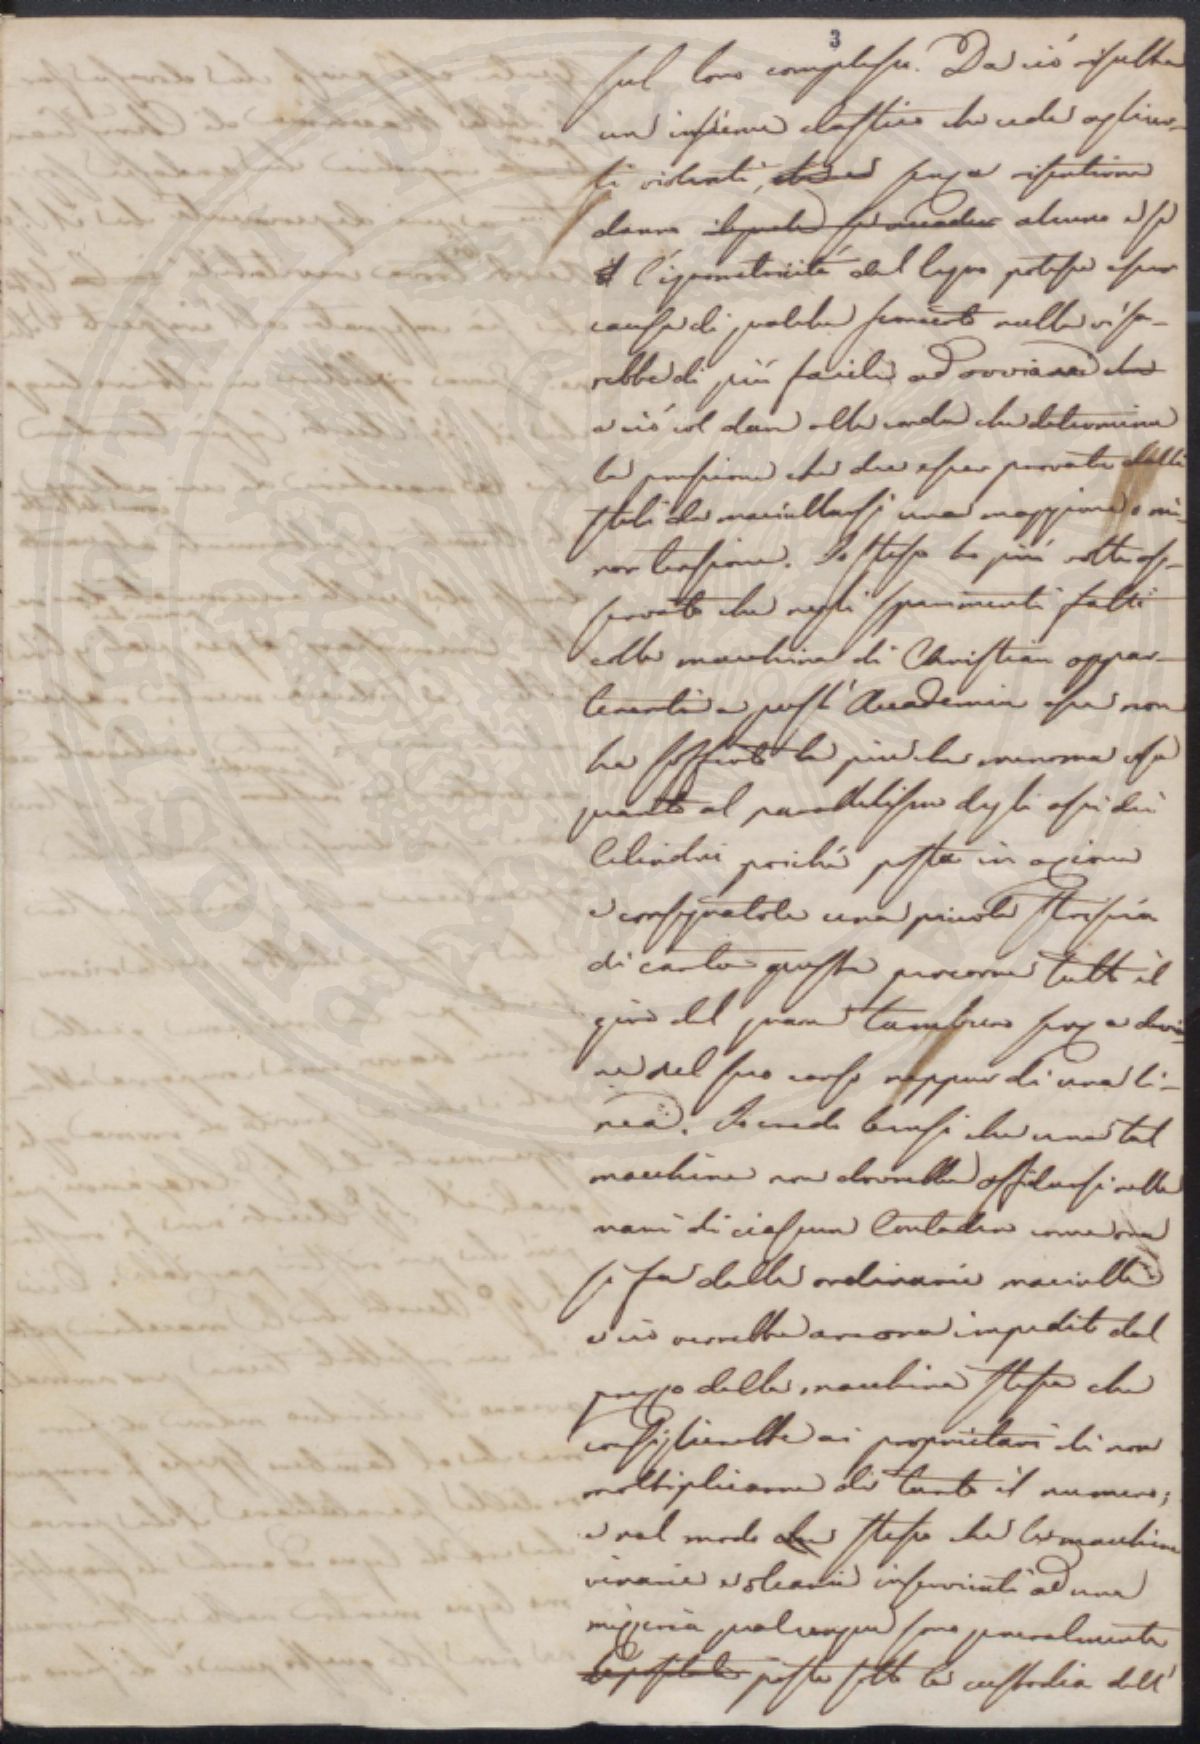 3
sul loro complesso. Da ciò risulta
un insieme elastico che cede agli ur-
ti violenti, senza risentirne
danno alcuno e se
l'igrometricità del legno potesse esser
causa di qualche sconcerto nulla vi sa-
rebbe di più facile ad ovviare
a ciò col dare alla corda che determina
la pressione che dee esser provata dalli
steli da maciullarsi una maggiore o mi-
nor tensione. Io stesso ho più volte os-
servato che negli sperimenti fatti
colla macchina di Christian appar-
tenente a quest'Accademia essa non
ha sofferto la più che menoma cosa
quanto al parallelismo degli assi dei
Cilindri poiché posta in azione
e consegnatole una piccola striscia
di carta questa percorre tutto il
giro del gran tamburo senza devia-
re del suo corso neppur di una li-
nea. Io credo bensì che una tal
macchina non dovrebbe affidarsi nelle
mani di ciascun Contadin come ora
si fa delle ordinarie maciulle
e ciò verrebbe ancora impedito dal
prezzo della macchina stessa che
consiglierebbe ai proprietari di non
moltiplicarne di tanto il numero;
e nel modo stesso che le macchine
vinarie e olearie inservienti ad una
mezzeria qualunque sono generalmente
poste sotto la custodia dell'